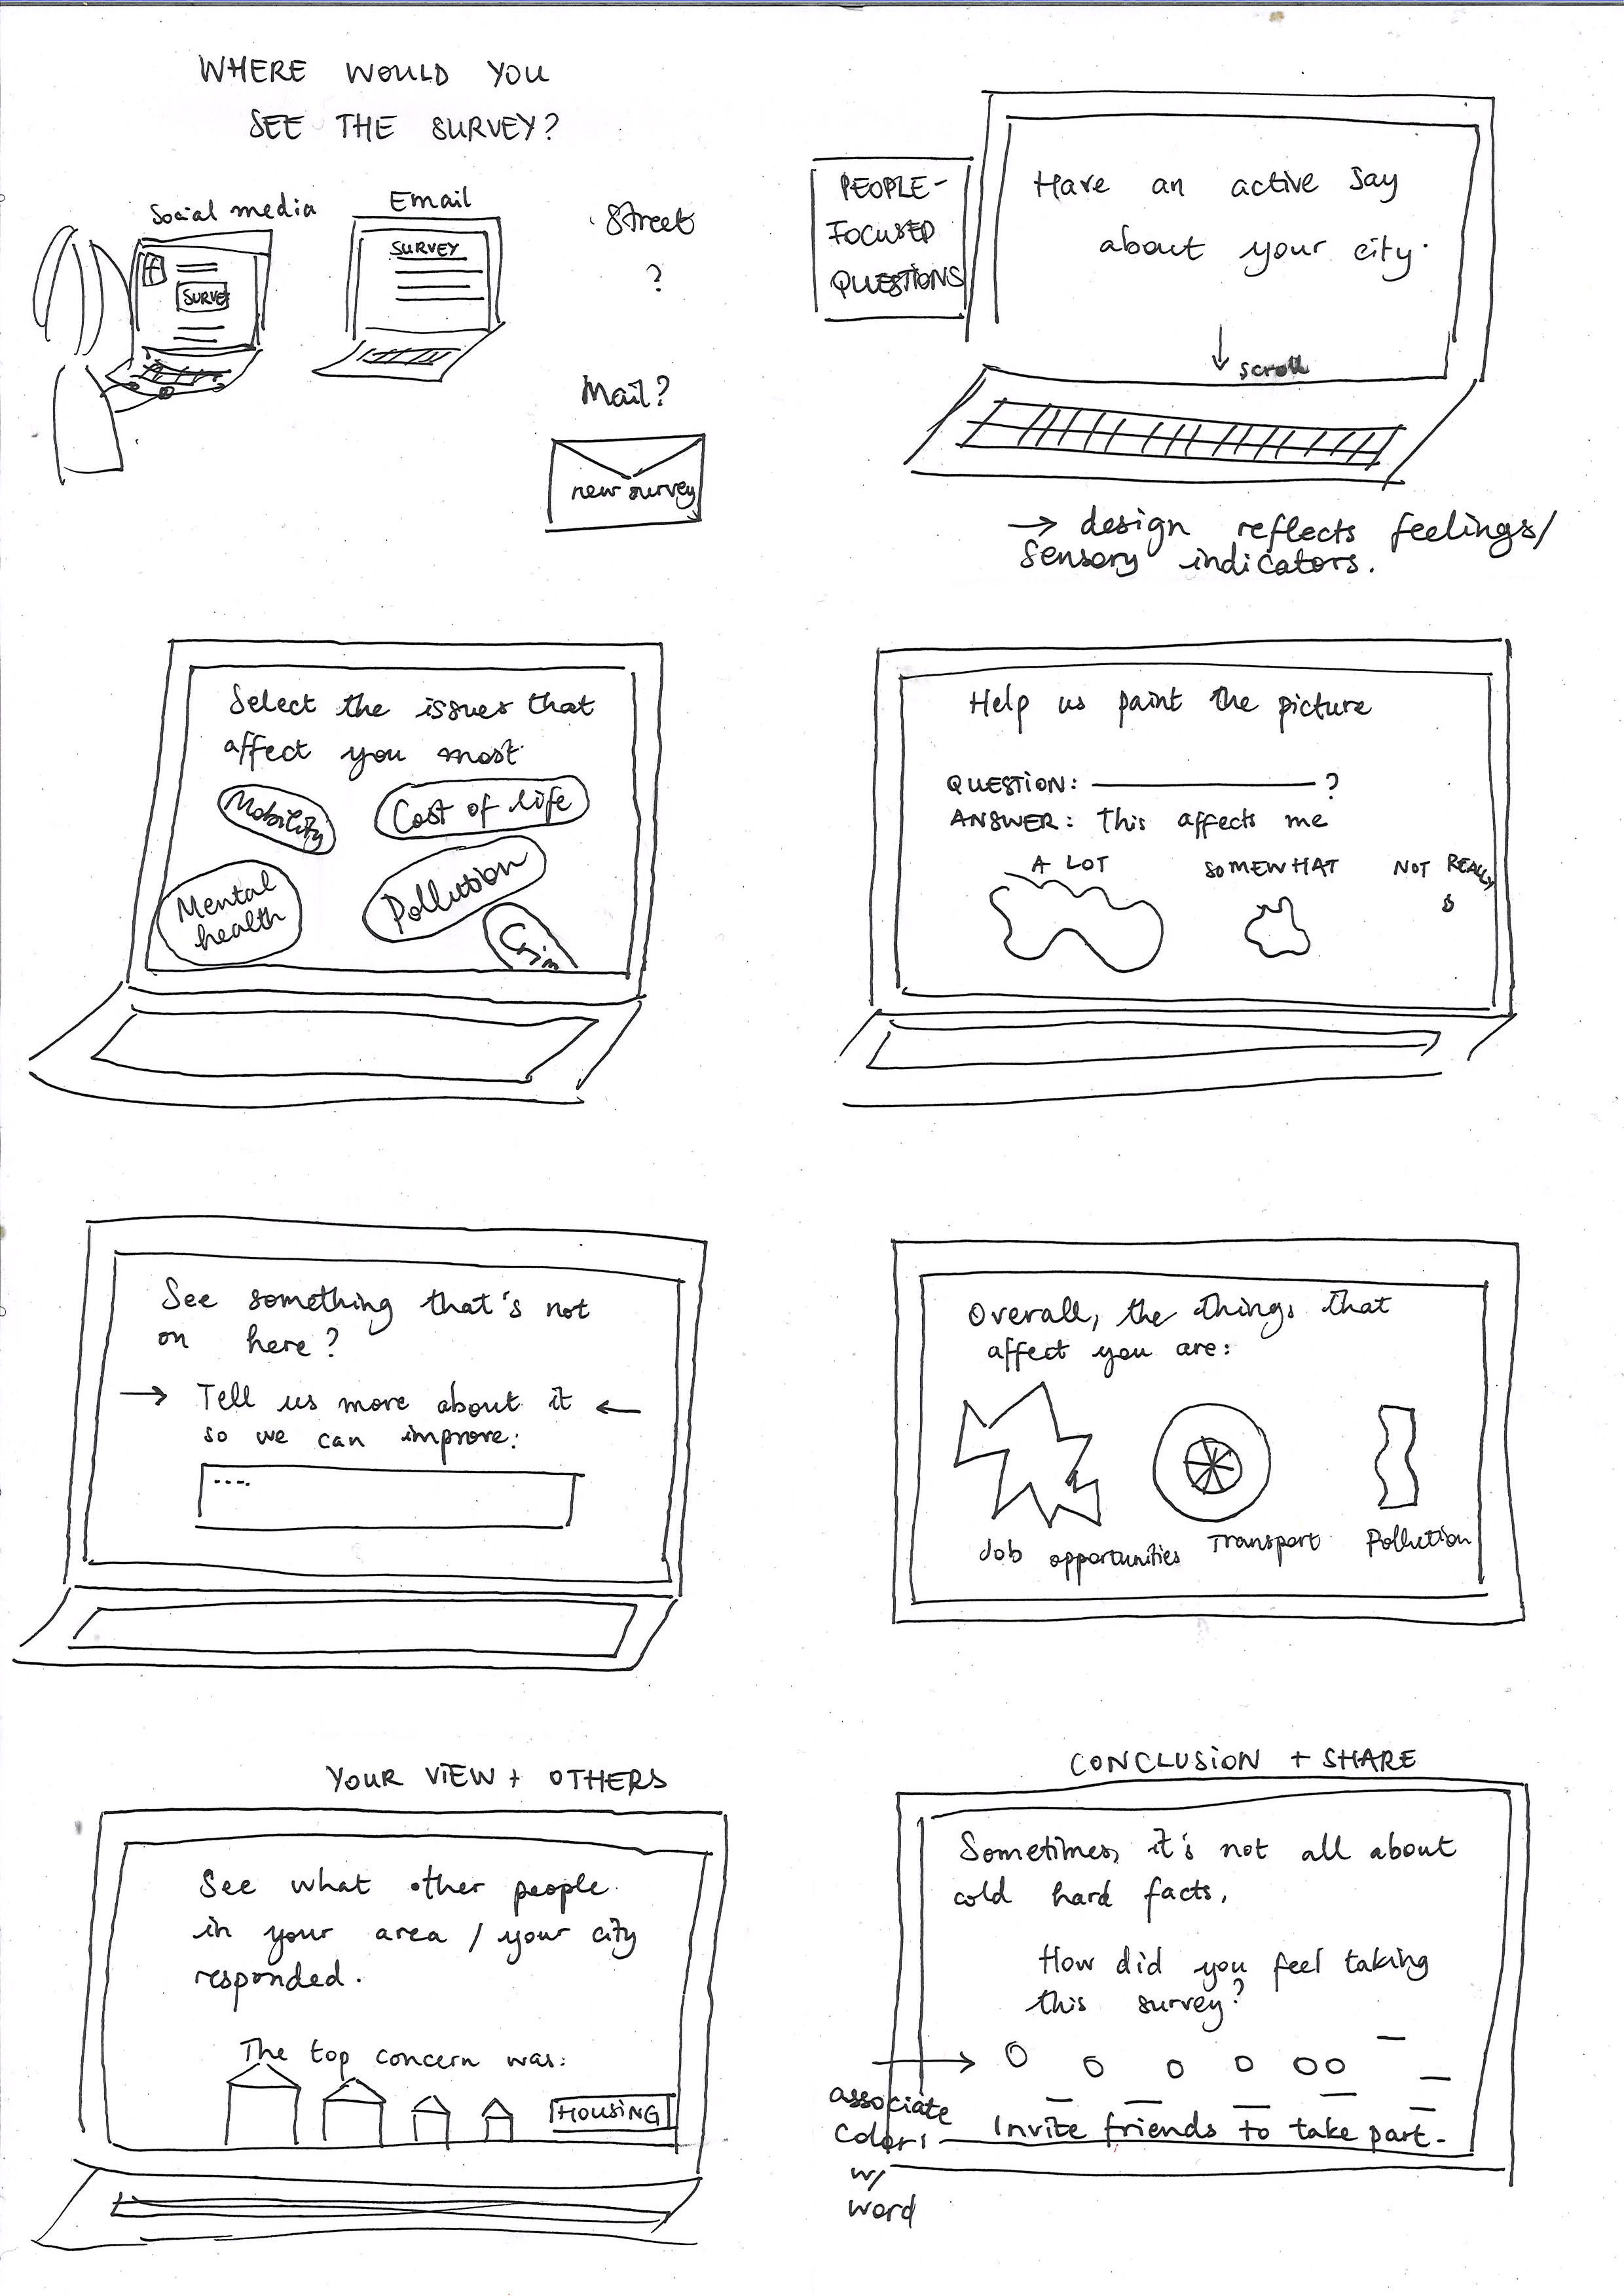 WHERE WOULD YOU
SEE THE SURVEY?
Social media
f
SURVEY
Email
SURVEY
Street
?
Mail?
new survey
PEOPLE-
FOCUSED
QUESTIONS
Have an active say
about your city.
↓ scroll
→ design reflects feelings/
sensory indicators.
Select the issues that
affect you most
Mobility
Cost of life
Mental
health
Pollution
Crim
Help us paint the picture
QUESTION: ————— ?
ANSWER: This affects me
A LOT
SOMEWHAT
NOT REALLY
See something that's not
on here?
→ Tell us more about it ←
so we can improve:
....
Overall, the things that
affect you are:
Job opportunities
Transport
Pollution
YOUR VIEW + OTHERS
See what other people
in your area / your city
responded.
The top concern was:
HOUSING
CONCLUSION + SHARE
Sometimes, it's not all about
cold hard facts.
How did you feel taking
this survey?
associate
colors
w/
word
Invite friends to take part.